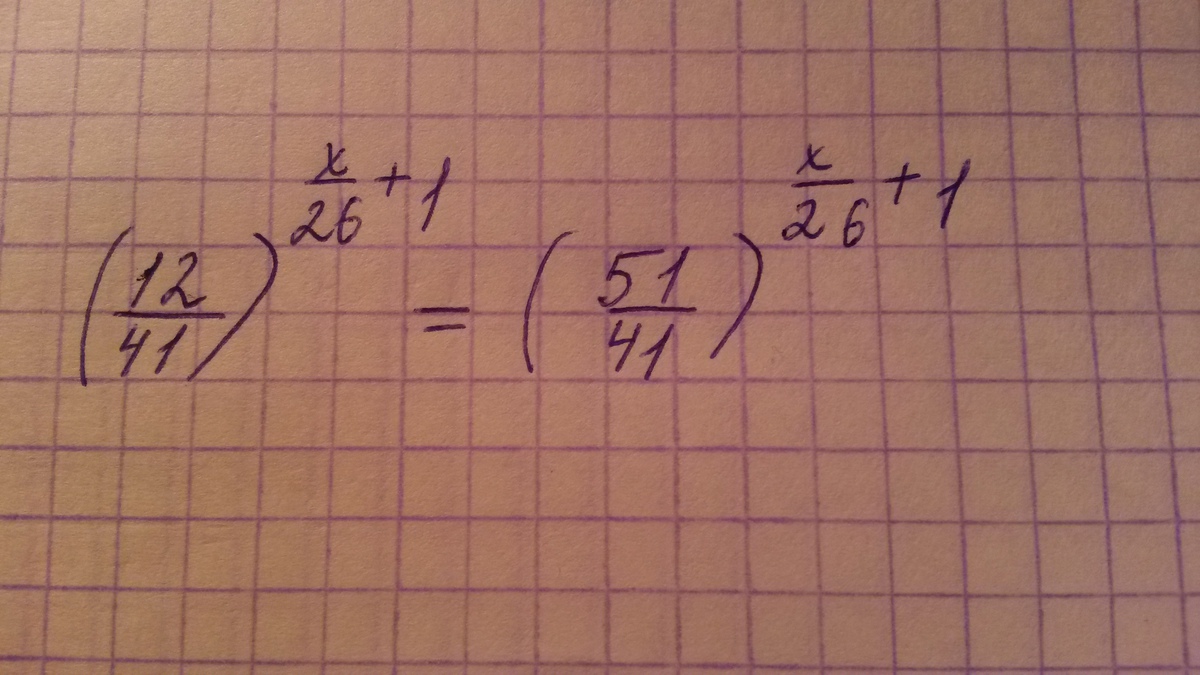 (12/41)^(x/26 + 1) = (51/41)^(x/26 + 1)